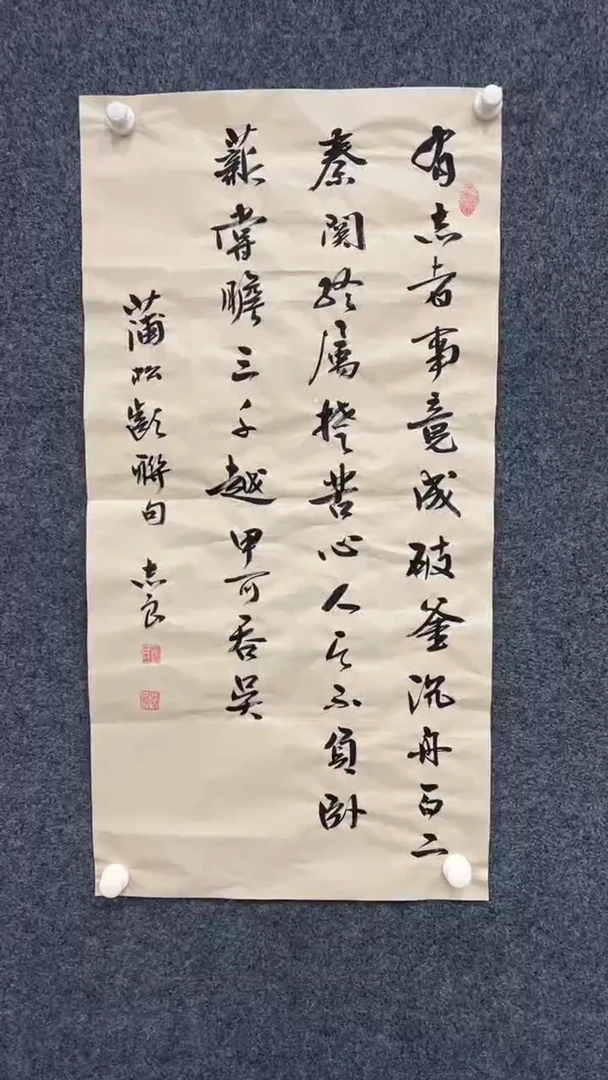 有志者事竟成破釜沉舟百二
秦関终属楚苦心人天不負卧
薪嘗膽三千越甲可吞吴
蒲松齡聯句 志良